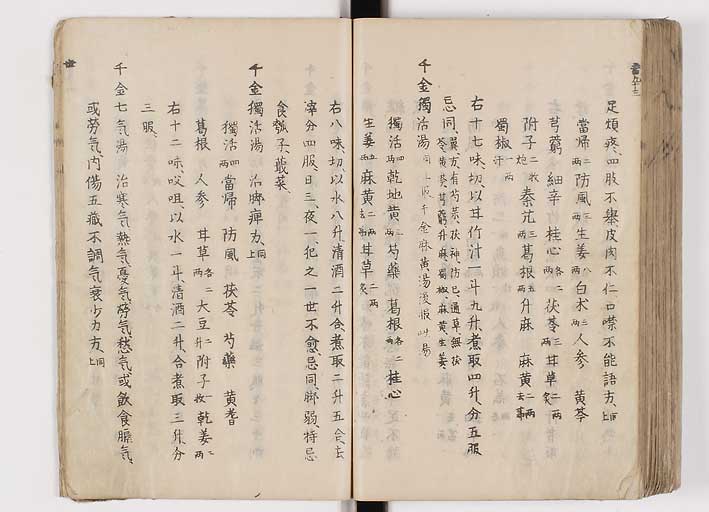 足煩疼、四肢不擧、皮肉不仁、口噤不能語方、上同
當帰二両 防風三両 生姜八両 白朮三両 人参 黄芩
芎藭 細辛 桂心各二両 茯苓三両 甘草炙二両
附子二枚炮 秦艽三両 葛根五両 升麻 麻黄二両去節
蜀椒一両汗
右十七味、切、以甘竹汁一斗九升、煮取四升、分五服
忌同、
千金獨活湯
獨活四両 乾地黄三両 芍藥 葛根各二両 桂心
生姜五両 麻黄二両去節 甘草二両炙
右八味、切、以水八升、清酒二升、合煮取二升五合、去
滓、分四服、日三、夜一、犯之一世不愈、忌同、脚弱特忌
食瓠子、蕺菜、
千金獨活湯、治脚痺方、上同
獨活四両 當帰 防風 茯苓 芍藥 黄耆
葛根 人参 甘草各二両 大豆一升 附子一枚 乾姜三両
右十二味、㕮咀、以水一斗、清酒二升、合煮取三升、分
三服、
千金七气湯、治寒气、熱气、憂气、勞气、愁气、或飲食膈气、
或勞气、内傷五藏不調、气衰少力方、上同